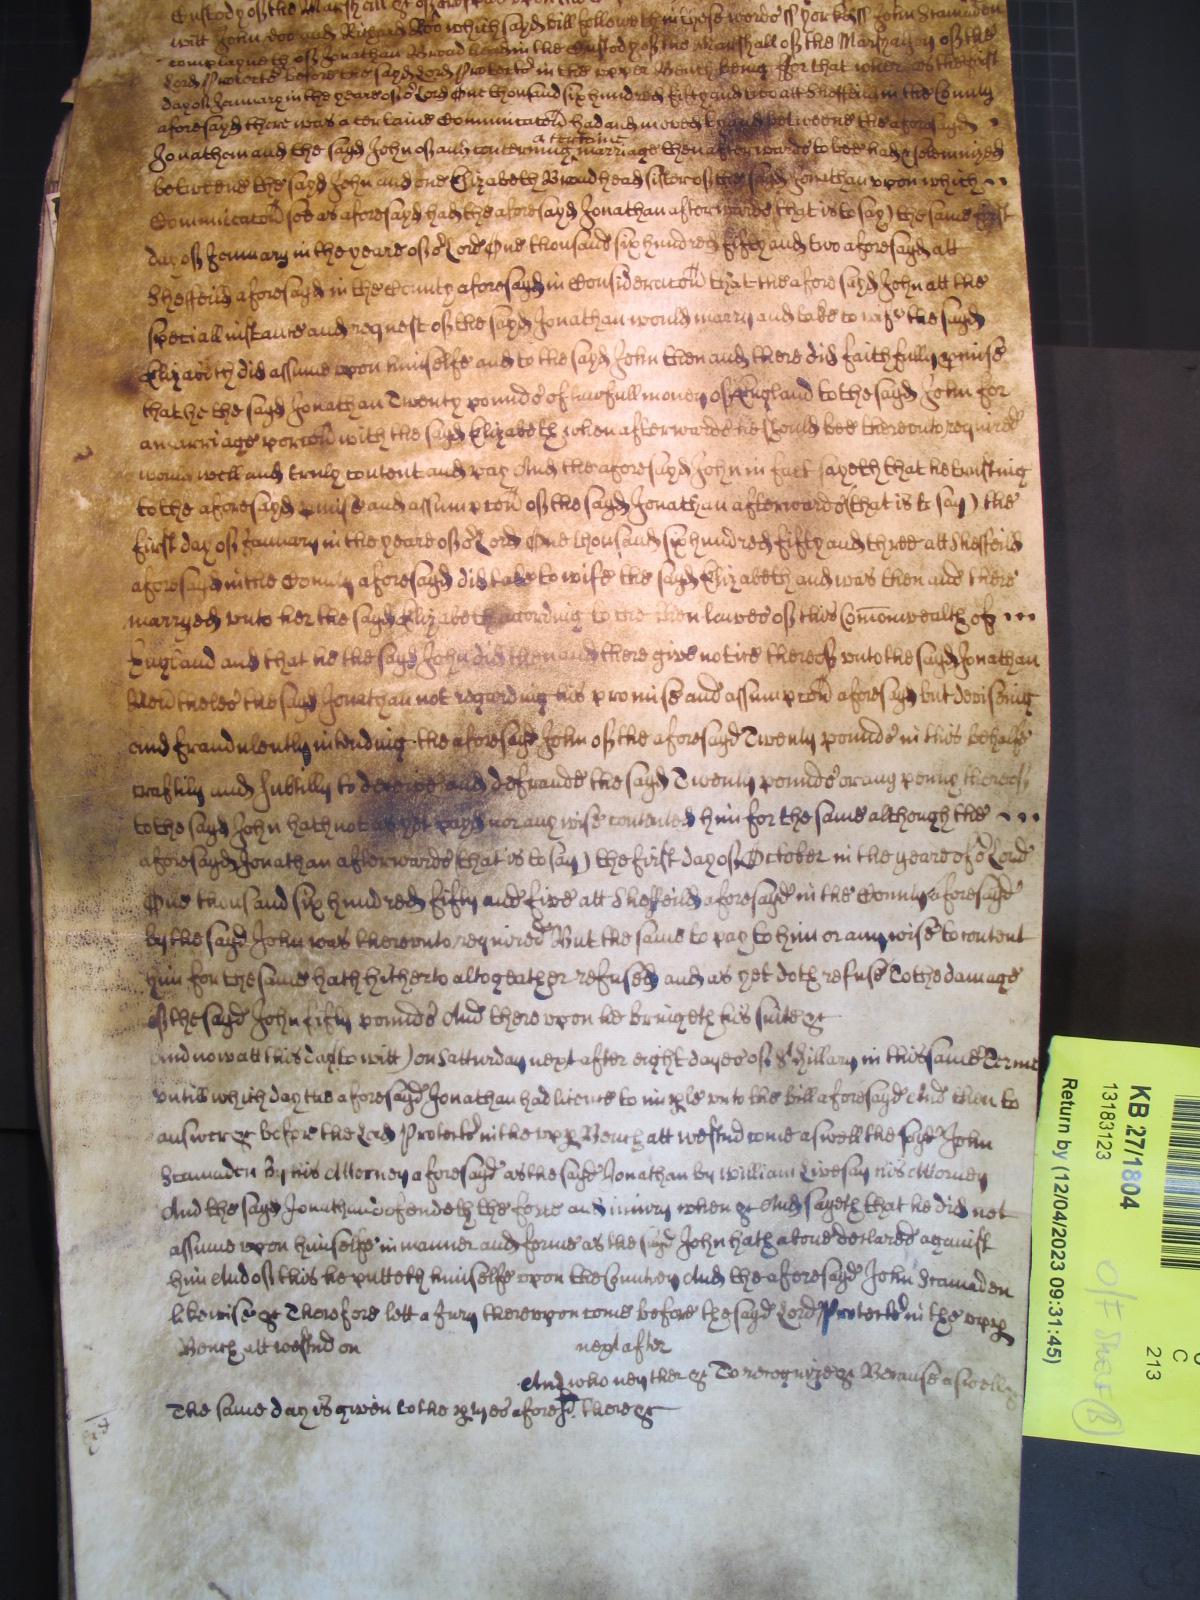 Custody of the Marshall &c of
witt John doo and Richard Roo which sayd bill followeth in these wordes ss york ss John Scamaden
complayneth of Jonathan Broadhead in the Custody of the Marshall of the Marshalsey of the
Lord Protector before the sayd Lord Protector in the upper Bench being for that whereas the first
day of January in the yeare of or Lord One thousand six hundred fifty and two att Sheffeild in the County
aforesayd there was a certaine Communicacon had and moved by and betweene the aforesayd
Jonathan and the sayd John of and concerning a certaine marriage then afterwards to bee had & solemnized
betweene the sayd John and one Elizabeth Broadhead sister of the sayd Jonathan upon which
Communicacon soe as aforesayd had the aforesayd Jonathan afterwards (that is to say) the same first
day of January in the yeare of or Lord One thousand six hundred fifty and two aforesayd att
Sheffeild aforesayd in the County aforesayd in Consideracon that the aforesayd John att the
speciall instance and request of the sayd Jonathan would marry and take to wife the sayd
Elizabeth did assume upon himselfe and to the sayd John then and there did faithfully pmise
that he the sayd Jonathan Twenty pounds of lawfull money of England to the sayd John for
a marriage porcon with the sayd Elizabeth when afterwards he should bee thereunto required
would well and truly content and pay And the aforesayd John in fact sayeth that he trusting
to the aforesayd pmise and assumpcon of the sayd Jonathan afterwards (that is to say) the
first day of January in the yeare of or Lord One thousand six hundred fifty and three att Sheffeild
aforesayd in the County aforesayd did take to wife the sayd Elizabeth and was then and there
marryed unto her the sayd Elizabeth according to the then lawes of this Comonwealth of
England and that he the sayd John did then and there give notice thereof unto the sayd Jonathan
Neverthelesse the sayd Jonathan not regarding his promise and assumpcon aforesayd but deviseing
and fraudulently intending the aforesayd John of the aforesayd Twenty pounds in this behalfe
craftily and subtilly to deceive and defraude the sayd Twenty pounds or any penny thereof
to the sayd John hath not as yet payd nor any wise contented him for the same although the
aforesayd Jonathan afterwards (that is to say) the first day of October in the yeare of or Lord
One thousand six hundred fifty and five att Sheffeild aforesayd in the County aforesayd
by the sayd John was thereunto required But the same to pay to him or any wise to content
him for the same hath hitherto altogeather refused and as yet doth refuse To the damage
of the sayd John fifty pounds And thereupon he bringeth his suite &c
And now att this day (to witt) on Satturday next after eight dayes of St Hillary in this same Terme
untill which day the aforesayd Jonathan had licence to imple unto the bill aforesayd And then to
answer &c before the Lord Protector in the upp Bench att westmd come aswell the sayd John
Scamaden by his Attorney aforesayd as the sayd Jonathan by William Livesay his Attorney
And the sayd Jonathan defendeth the force and iniury when &c And sayeth that he did not
assume upon himselfe in manner and forme as the sayd John hath above declared against
him And of this he putteth himselfe upon the Countrey And the aforesayd John Scamaden
likewise &c Therefore lett a Jury thereupon come before the sayd Lord Protector in the upp
Bench att westmd on next after
And who neyther &c To recognize &c Because aswell
The same day is given to the ptyes aforesd there &c
KB 27/1804
13183123
Return by (12/04/2023 09:31:45)
C
213